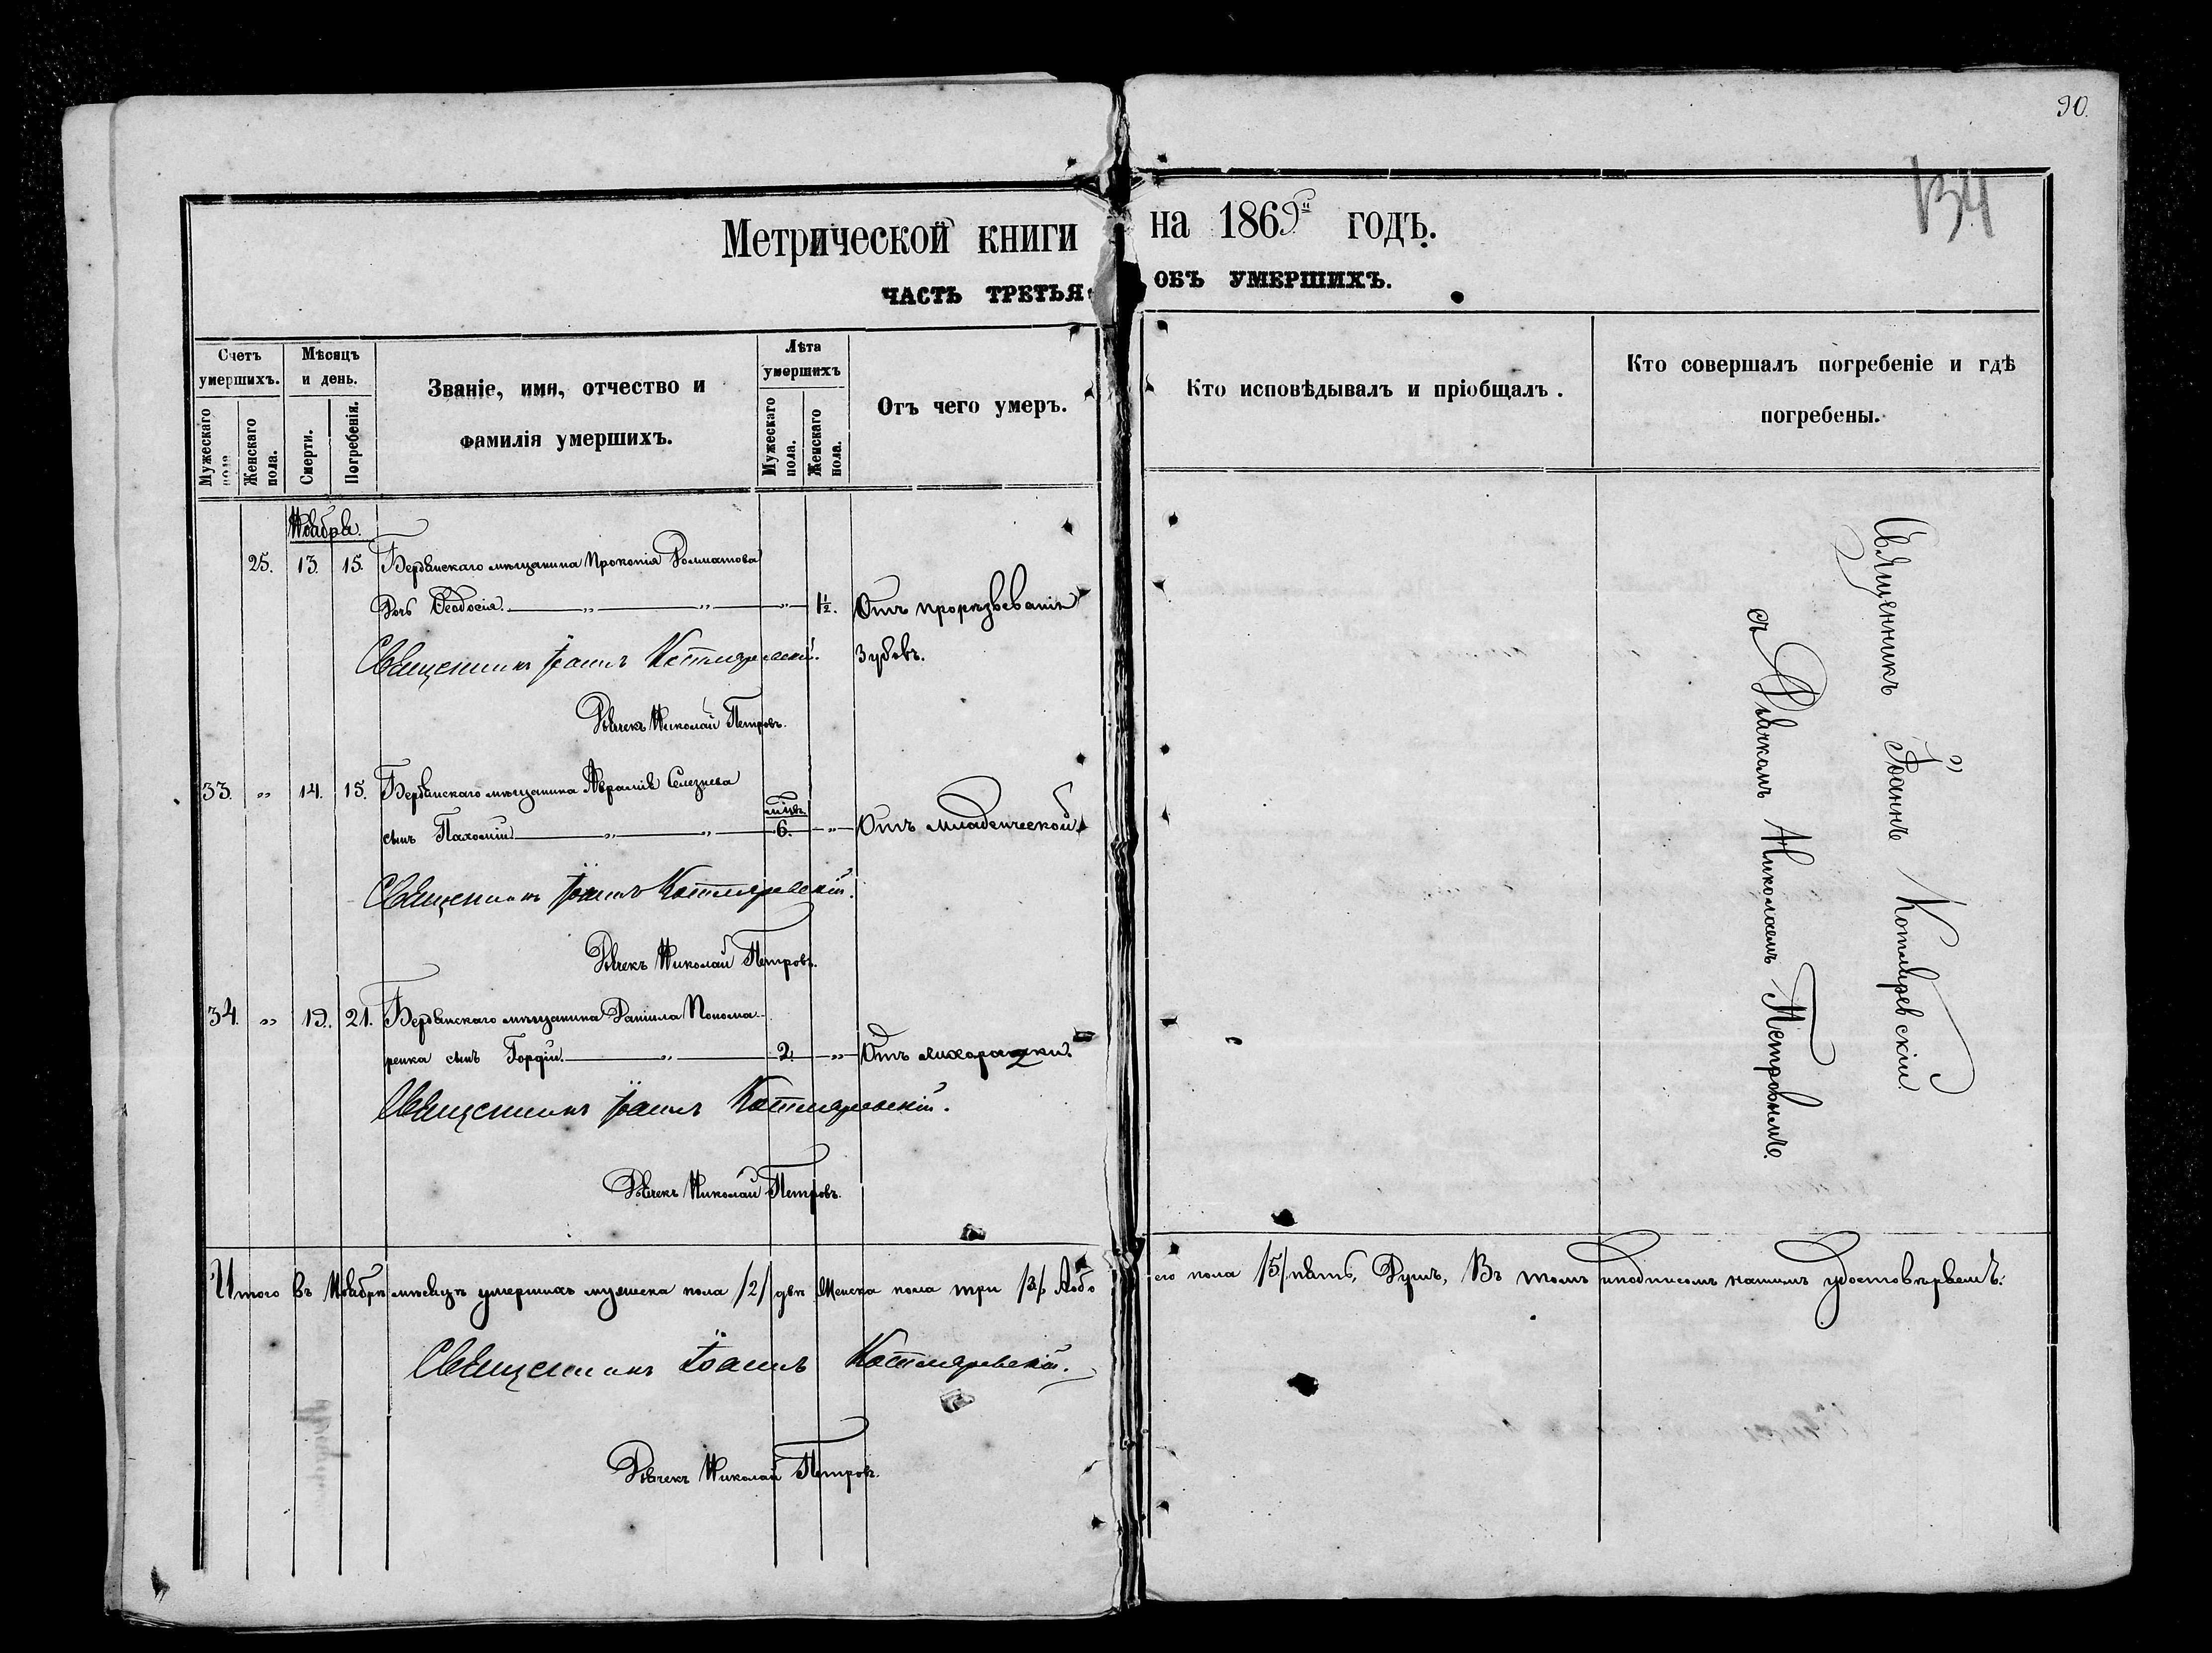 90.
134
Метрической книги на 1869й годъ.
ЧАСТЬ ТРЕТЬЯ ОБЪ УМЕРШИХЪ.
Счетъ умершихъ.
Мѣсяцъ и день.
Званіе, имя, отчество и фамилія умершихъ.
Лѣта умершихъ
Отъ чего умеръ.
Кто исповѣдывалъ и пріобщалъ.
Кто совершалъ погребеніе и гдѣ погребены.
Мужескаго пола
Женскаго пола.
Смерти.
Погребенія.
Мужескаго пола.
Женскаго пола.
Ноября.
25. 13. 15. Бердянскаго мѣщанина Прокопія
Дочь Ѳеодосія. „ „ „ 1½. Отъ прорѣзыванія
Священникъ Іоаннъ Котляревскій. зубовъ.
Дьячекъ Николай Петровъ.
33. „ 14. 15. Бердянскаго мѣщанина Аврамія Селезнева
мѣсяц.
сынъ Пахомій „ „ 6. „ Отъ младенческой
Священникъ Іоаннъ Котляревскій.
Дьячекъ Николай Петровъ.
34. „ 19. 21. Бердянскаго мѣщанина Даніила Понома-
ренка сынъ Гордій. „ 2. „ Отъ лихорадки.
Священникъ Іоаннъ Котляревскій.
Дьячекъ Николай Петровъ.
Священникъ Іоаннъ Котляревскій
съ Дьячкомъ Николаемъ Петровымъ.
Итого въ Ноябрѣ мѣсяцѣ умершихъ мужеска пола /2/ два Женска пола три /3/ Аобо его пола /5/ пять, Душъ, Въ томъ подписомъ нашимъ удостовѣряемъ:
Священникъ Іоаннъ Котляревскій.
Дьячекъ Николай Петровъ.